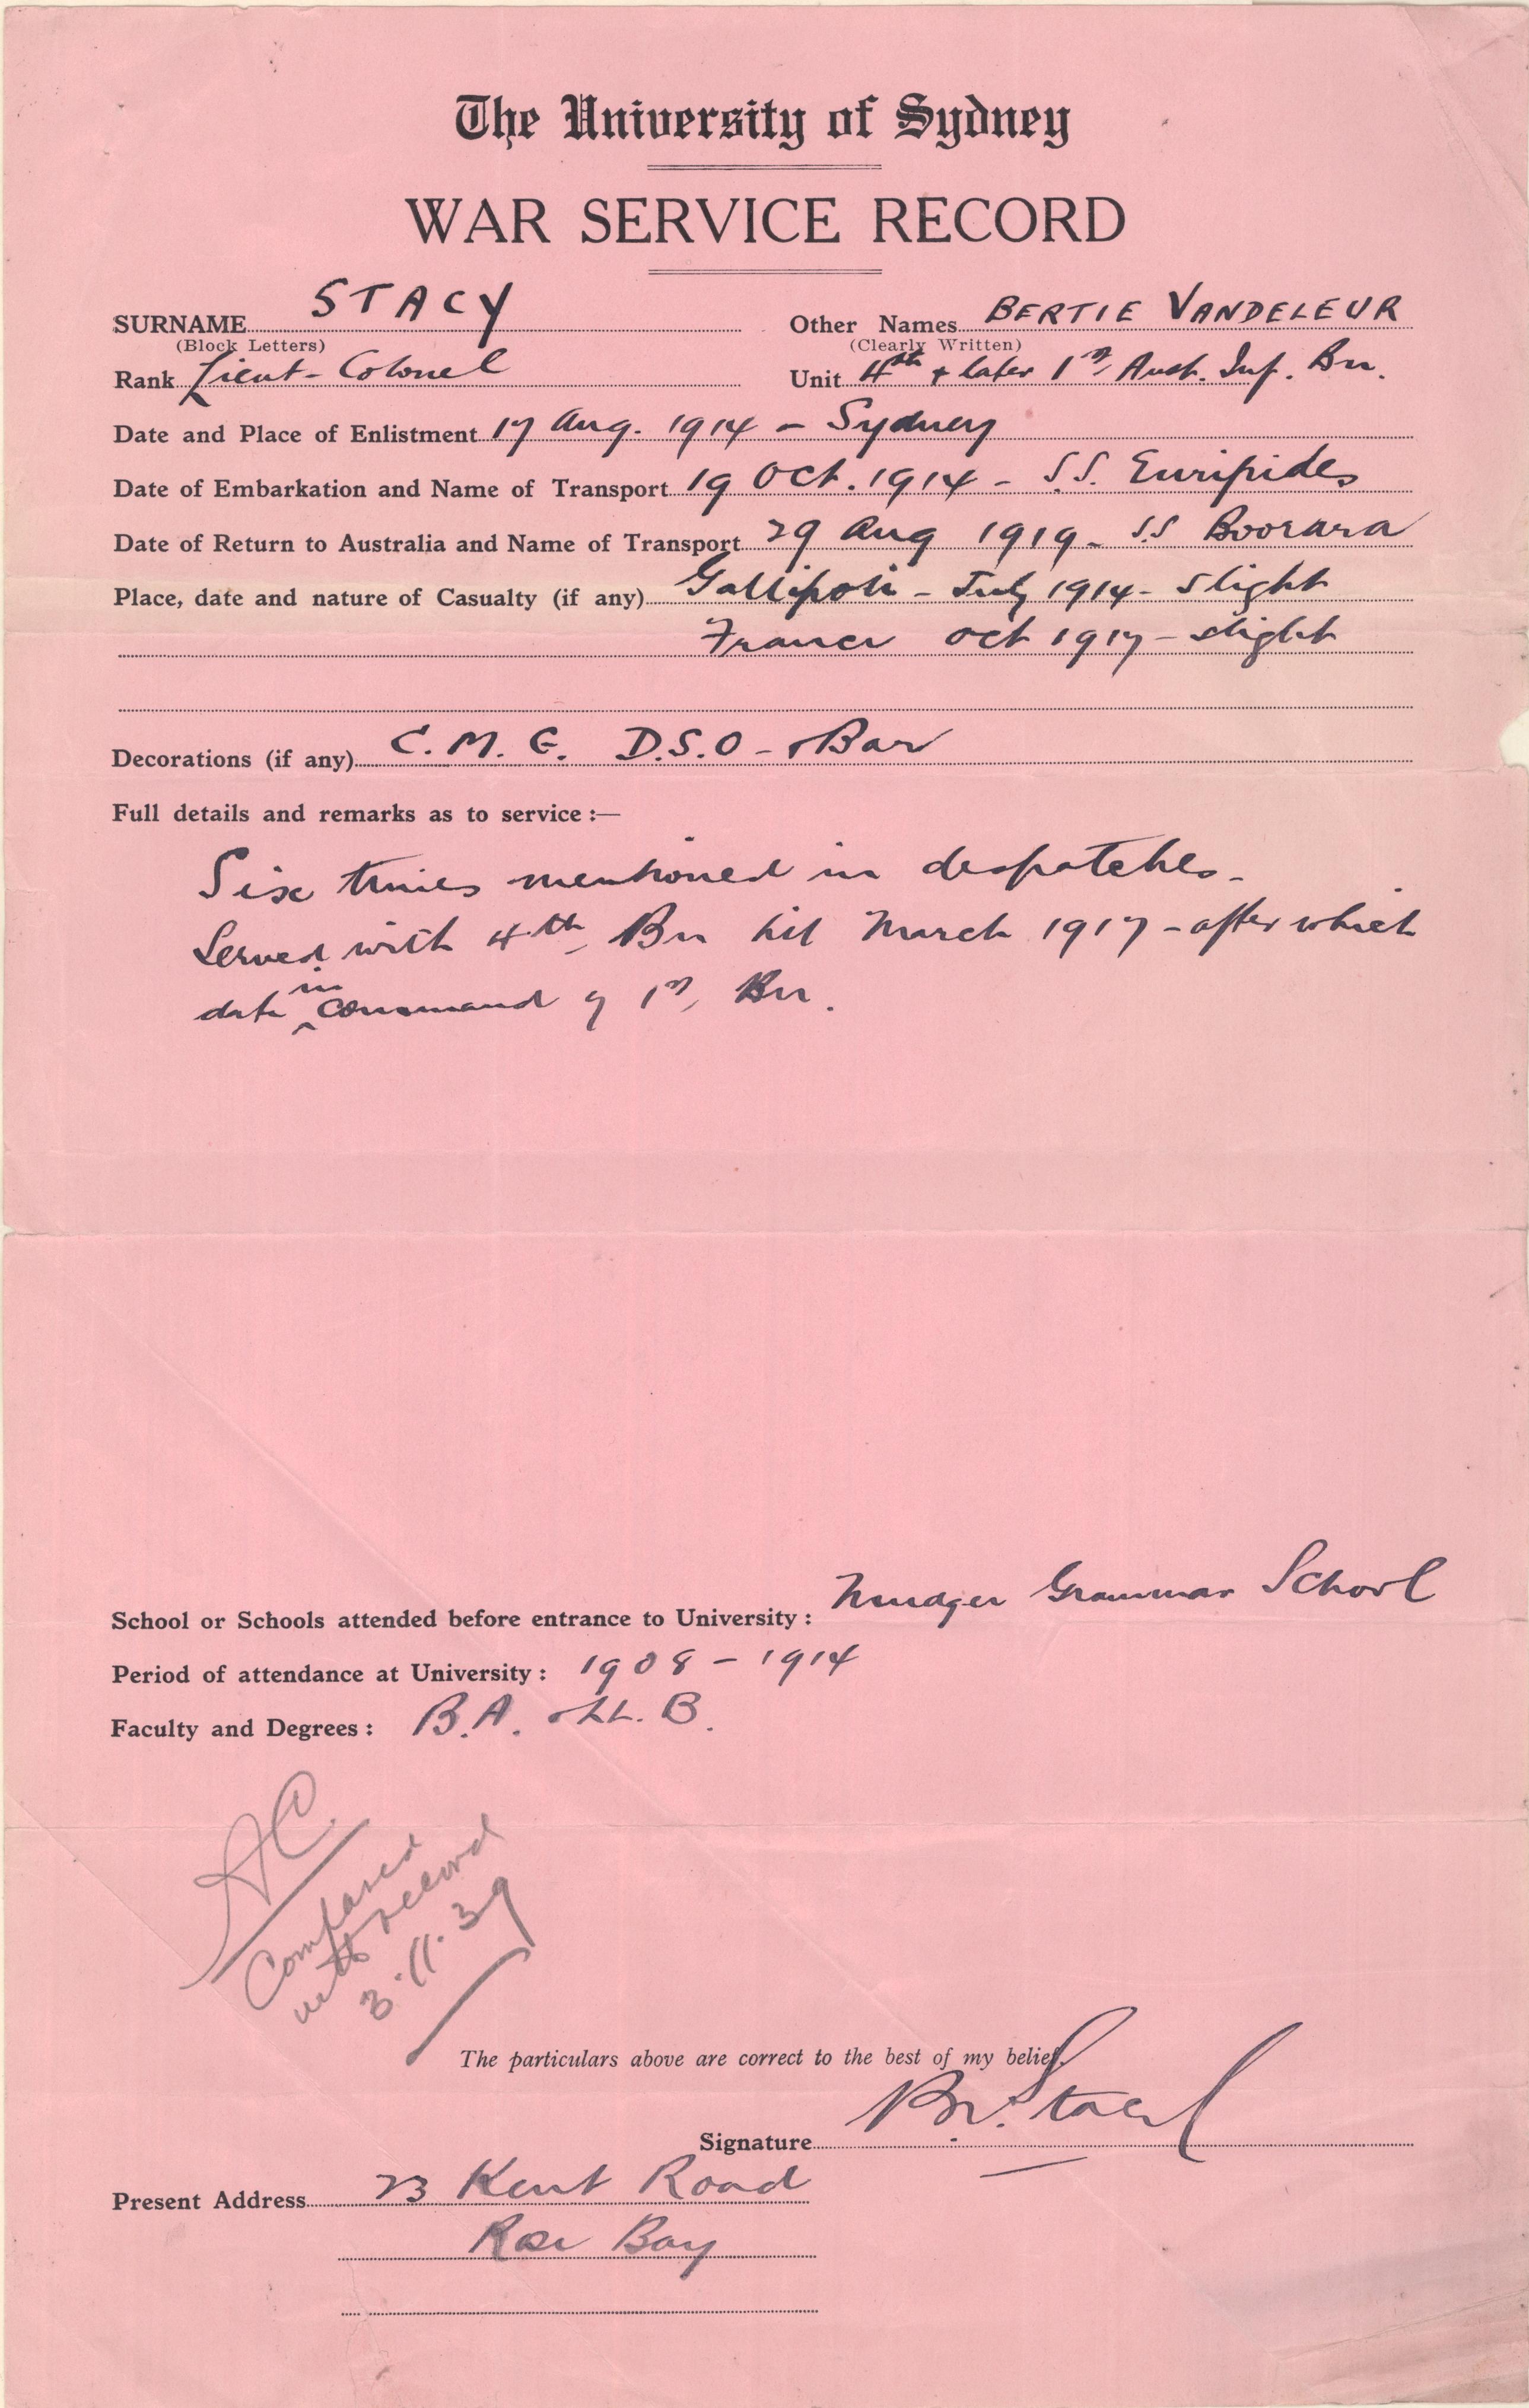 The University of Sydney
WAR SERVICE RECORD
SURNAME STACY Other Names BERTIE VANDELEUR
(Block Letters) (Clearly Written)
Rank Lieut-Colonel Unit 4th & later 1st Aust. Inf. Bn.
Date and Place of Enlistment 17 Aug. 1914 - Sydney
Date of Embarkation and Name of Transport 19 Oct. 1914 - S.S. Euripides
Date of Return to Australia and Name of Transport 29 Aug 1919 - S.S Boorara
Place, date and nature of Casualty (if any) Gallipoli - July 1914 - slight
France Oct 1917 - slight
Decorations (if any) C.M.G. D.S.O - & Bar
Full details and remarks as to service :—
Six times mentioned in despatches -
Served with 4th Bn till March 1917 - after which
date in command of 1st Bn.
School or Schools attended before entrance to University : Mudgee Grammar School
Period of attendance at University : 1908 - 1914
Faculty and Degrees : B.A. & LL.B.
Compared
with record
3.11.39
The particulars above are correct to the best of my belief.
Signature BV. Stacy
Present Address 23 Kent Road
Rose Bay